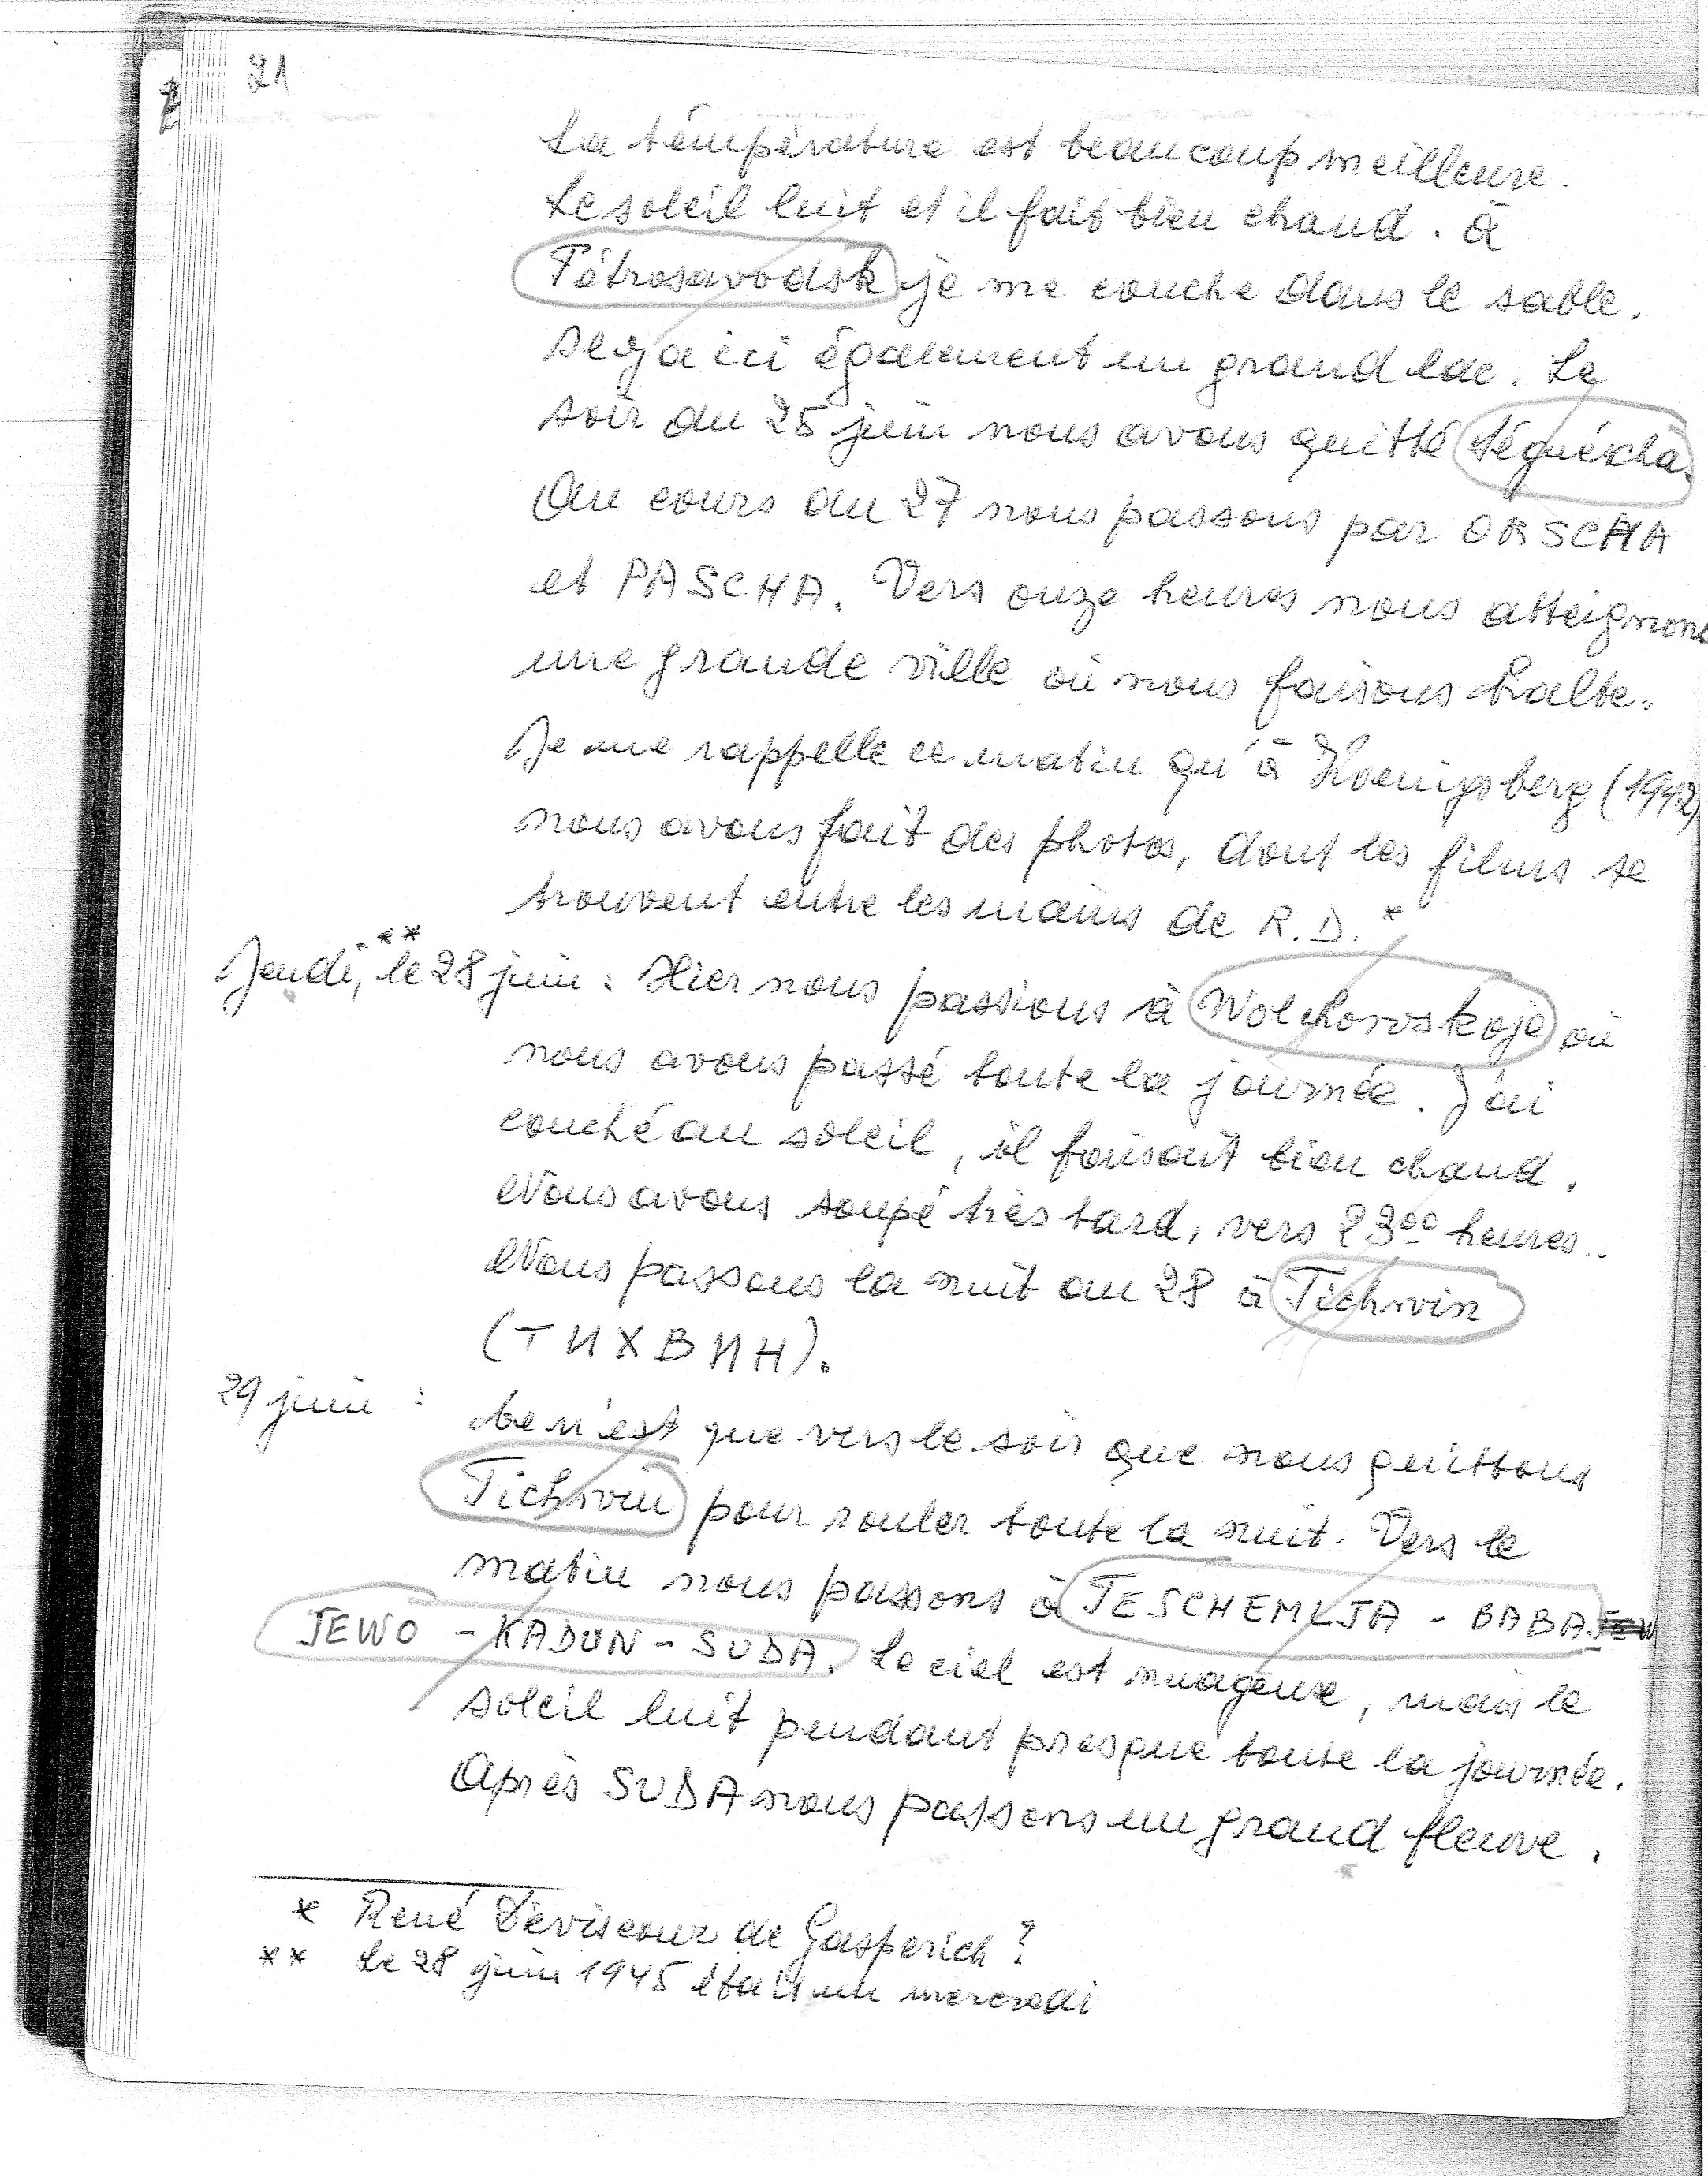 21
La témpérature est beaucoup meilleure.
Le soleil luit et il fait bien chaud. à
Pétrosavodsk je me couche dans le sable.
Il y a ici également un grand lac. Le
soir du 25 juin nous avons quitté Séguéscha.
Au cours du 27 nous passons par OASCHA
et PASCHA. Vers onze heures nous atteignons
une grande ville où nous faisons halte.
Je me rappelle ce matin qu'à Koenigsberg (1942)
nous avons fait des photos, dont les films se
trouvent entre les mains de R.D.*
Jeudi,** le 28 juin : Hier nous passions à Wolchowskoje où
nous avons passé toute la journée. J'ai
couché au soleil, il faisait bien chaud.
Nous avons soupé très tard, vers 23⁰⁰ heures.
Nous passons la nuit au 28 à Tichwin
(ТИХВИН).
29 juin : Ce n'est que vers le soir que nous quittons
Tichwin pour rouler toute la nuit. Vers le
matin nous passons à TESCHEMLJA - BABA
JEWO - KADUN - SUDA. Le ciel est nuageux, mais le
soleil luit pendant presque toute la journée.
Après SUDA nous passons un grand fleuve.
* René Déviscour de Gasperich ?
** Le 28 juin 1945 était un mercredi